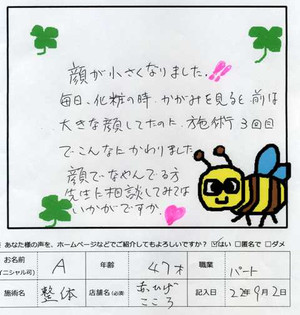 顔が小さくなりました。!!
毎日、化粧の時 かがみを見ると 前は
大きな顔してたのに 施術3回目
で こんなに かわりました
顔で なやんでる方
先生に相談してみては
いかがですか
あなた様の声を、ホームページなどでご紹介してもよろしいですか? ☑はい □匿名で □ダメ
お名前 イニシャル可) A 年齢 47才 職業 パート
施術名 整体 店舗名(必須 あひげ こころ 記入日 22年9月2日